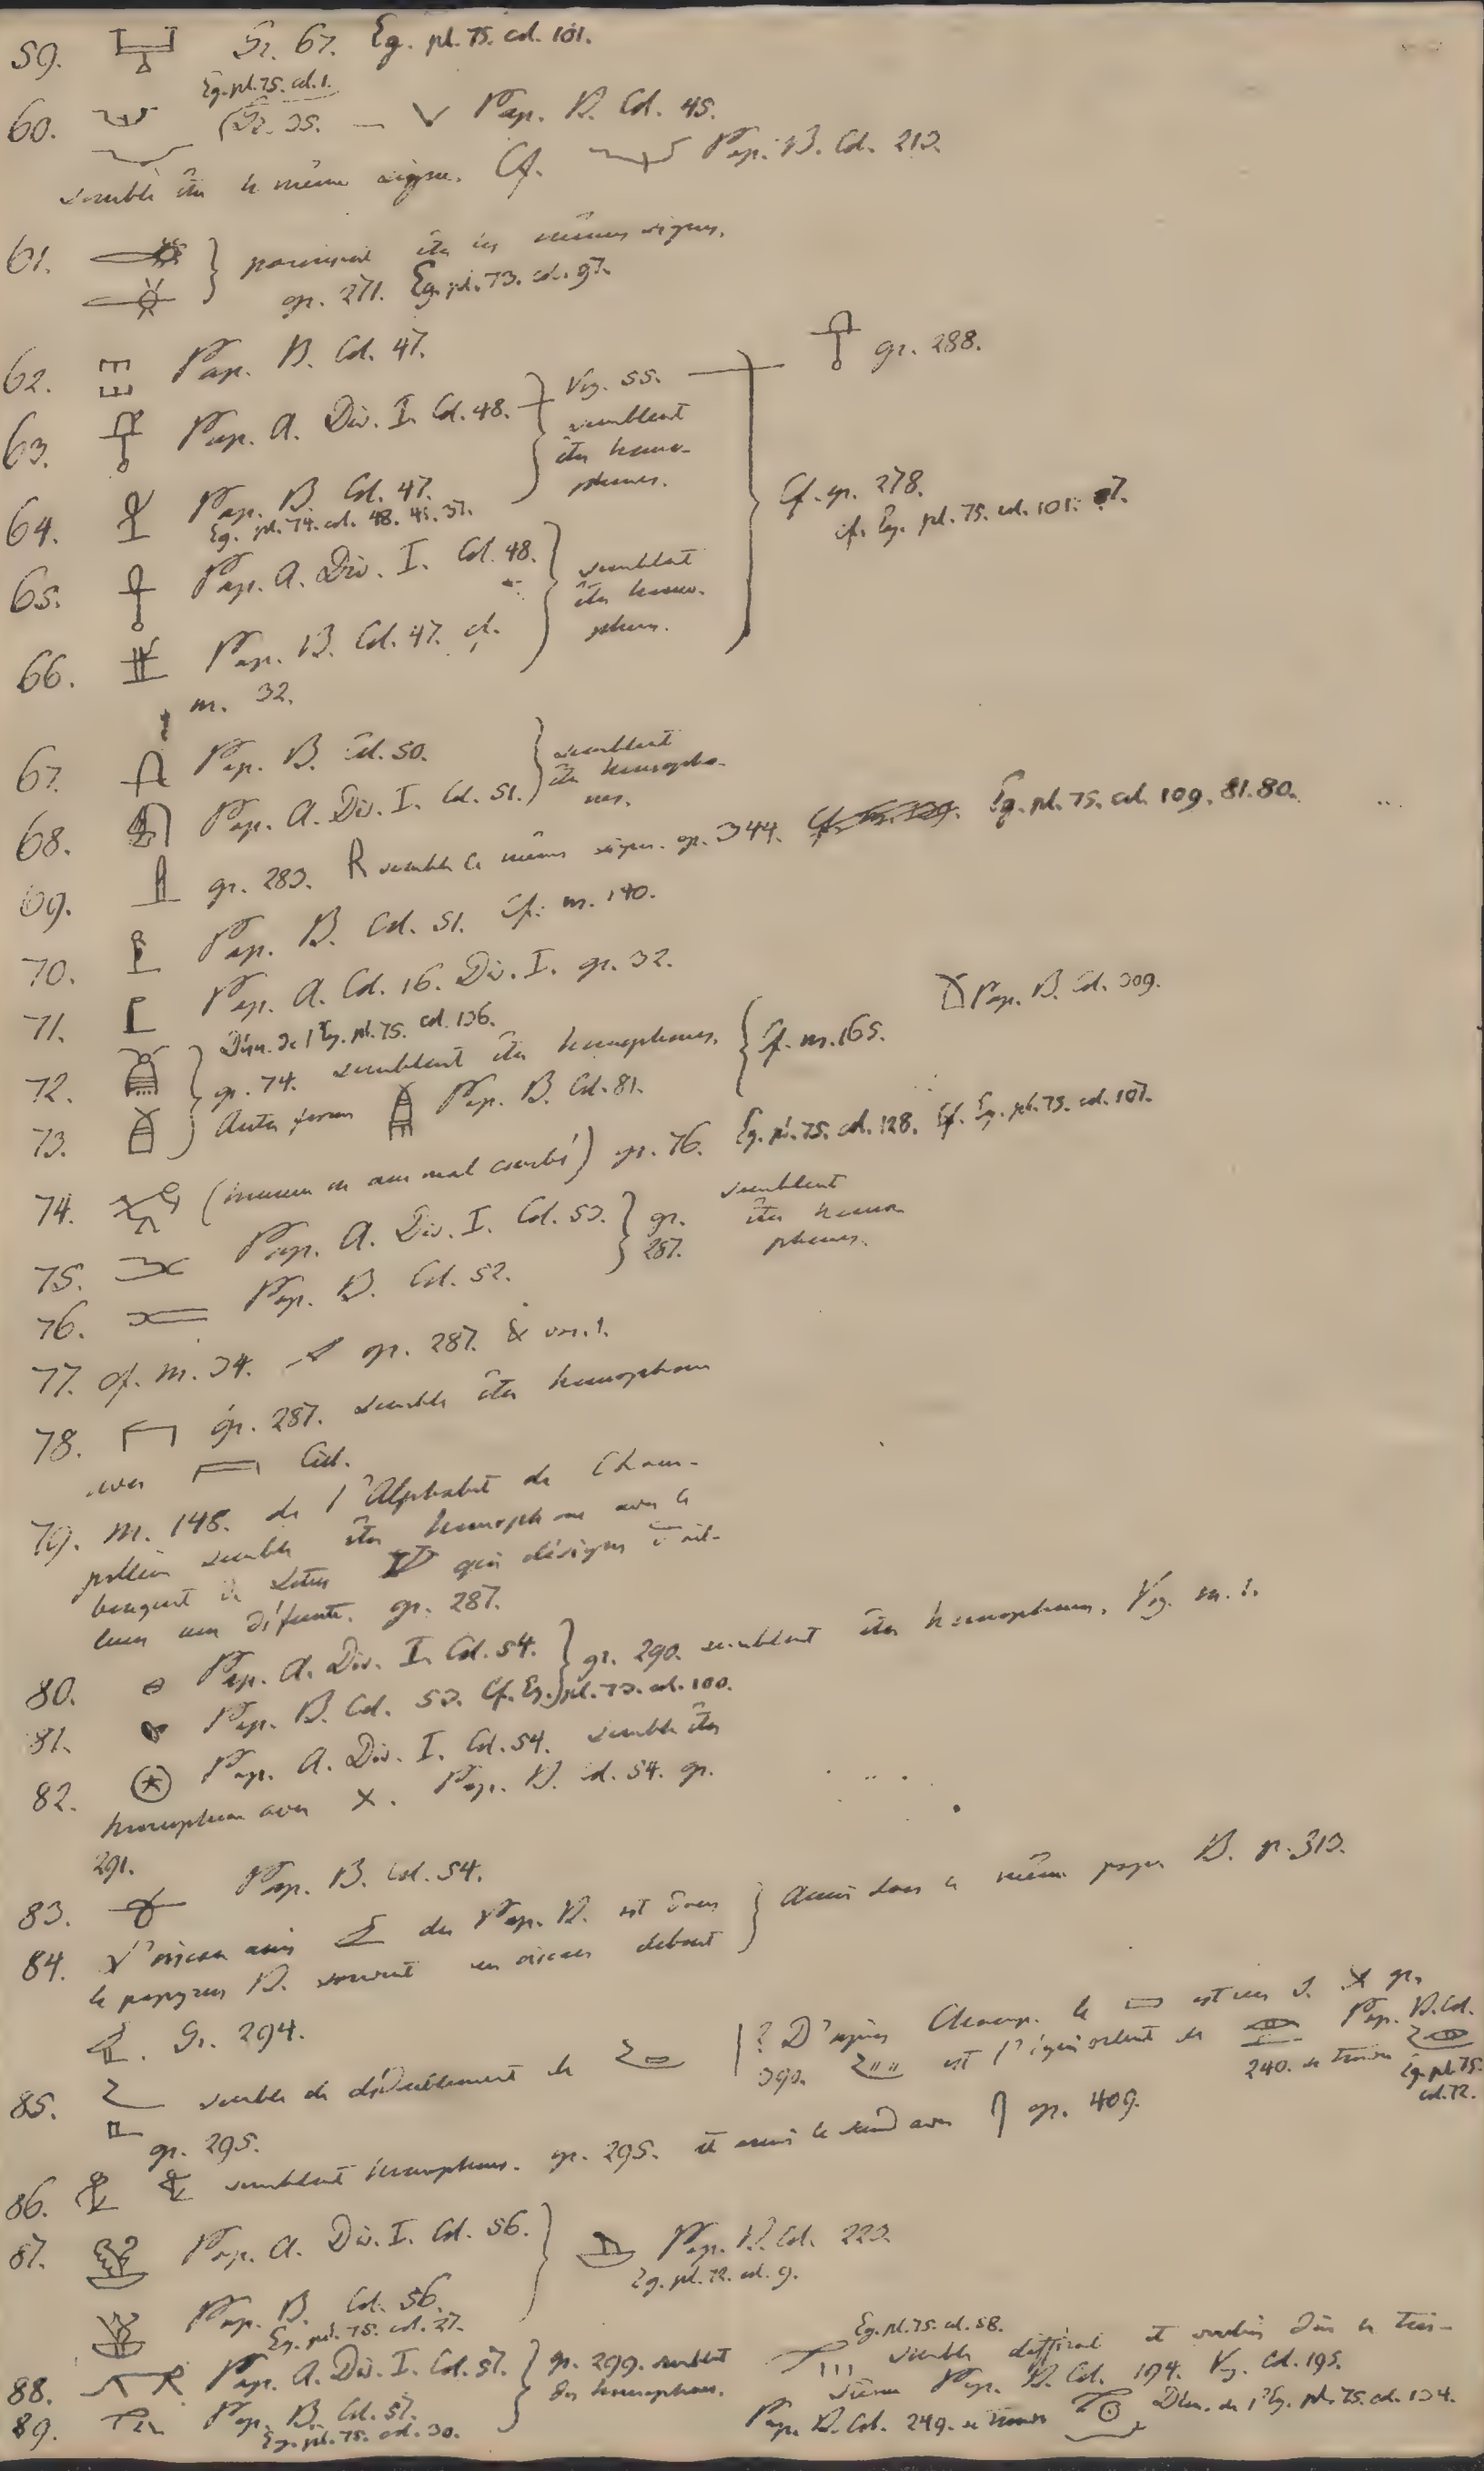 59. Gr. 67. Eg. pl. 75. col. 101.
Eg. pl. 75. col. 1.
60. (Gr. 35. — Pap. B. Col. 45.
semble être le même signe. Cf. Pap. B. Col. 213.
61. } paroissent être les mêmes signes.
gr. 271. Eg. pl. 73. col. 97.
62. Pap. B. Col. 47.
gr. 288.
63. Pap. A. Div. I. Col. 48. } Voy. 55.
semblent
être homo-
phones.
64. Pap. B. Col. 47.
Eg. pl. 74. col. 48. 45. 37.
Cf. gr. 278.
cf. Eg. pl. 75. col. 101. 7.
65. Pap. A. Div. I. Col. 48. } semblent
être homo-
phones.
66. Pap. B. Col. 47. cf.
m. 32.
67. Pap. B. Col. 50. } semblent
être homopho-
nes.
68. Pap. A. Div. I. Col. 51.
69. gr. 283. semble le même signe. gr. 344. Eg. pl. 75. col. 109. 81. 80.
70. Pap. B. Col. 51. Cf. m. 140.
71. Pap. A. Col. 16. Div. I. gr. 32.
Pap. B. Col. 309.
Dém. de l'Eg. pl. 75. col. 136.
72. } gr. 74. semblent être homophones. { Cf. m. 165.
73. Autre forme Pap. B. Col. 81.
74. (homme mal courbé) gr. 76. Eg. pl. 75. col. 128. Cf. Eg. pl. 75. col. 107.
75. Pap. A. Div. I. Col. 53. } gr.
287.
semblent
être homo-
phones.
76. Pap. B. Col. 52.
77. cf. m. 34. gr. 287. & m. 1.
78. gr. 287. semble être homophone
avec Ciel.
79. m. 148. de l'Alphabet de Cham-
pollion semble être homophone avec le
bouquet de Lotus qui désigne d'ail-
leurs une défunte. gr. 287.
80. Pap. A. Div. I. Col. 54. } gr. 290. semblent être homophones. Voy. m. 1.
81. Pap. B. Col. 53. Cf. Eg. pl. 73. col. 100.
82. Pap. A. Div. I. Col. 54. semble être
homophone avec X. Pap. B. Col. 54. gr.
291.
83. Pap. B. Col. 54.
84. L'oiseau assis du Pap. A. est dans
le papyrus B. souvent un oiseau debout } Aussi dans le même papyr. B. p. 313.
Gr. 294.
85. semble de
gr. 295.
? D'après Champ. le est un S. gr.
390. est l'équivalent de Pap. B. Col.
240. se trouve Eg. pl. 75.
col. 72.
86. semblent homophones. gr. 295. et aussi le second avec gr. 409.
87. Pap. A. Div. I. Col. 56. } Pap. B. Col. 223.
Eg. pl. 72. col. 9.
Pap. B. Col. 56.
Eg. pl. 75. col. 27.
88. Pap. A. Div. I. Col. 57. } gr. 299. semblent
des homophones.
89. Pap. B. Col. 57.
Eg. pl. 75. col. 30.
Eg. pl. 75. col. 58.
semble et
Pap. B. Col. 194. Voy. Col. 195.
Pap. B. Col. 249. se trouve Dém. de l'Eg. pl. 75. col. 134.